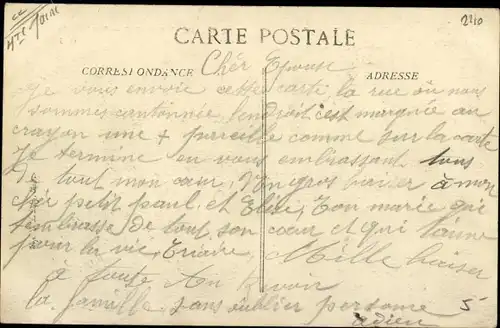 Hte Marne
2210
CARTE POSTALE
CORRESPONDANCE
ADRESSE
Chér Epouse
Je vous envoie cette carte la rue où nous
sommes cantonnée lendroit c'est marquée au
crayon une + pareille comme sur la carte
Je termine en vous embrassant tous
de tout mon cœur, Un gros baiser à mon
chér petit paul, et Ton marie qui
t'embrasse de tout son cœur et qui t'aime
pour la vie, Mille baiser
à toute Au Revoir
la famille, sans oublier personne
adieu
5